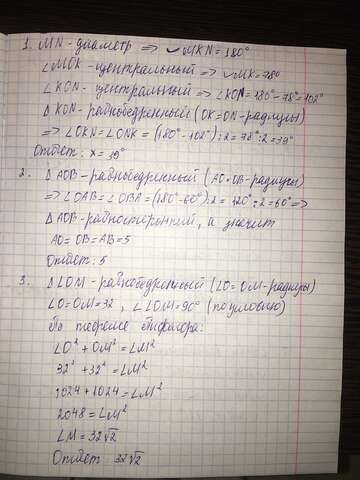 1. MN - диаметр => ◡MKN = 180°
∠MOK - центральный => ◡MK = 78°
∠KON - центральный => ∠KON = 180° - 78° = 102°
Δ KON - равнобедренный (OK = ON - радиусы)
=> ∠OKN = ∠ONK = (180° - 102°) : 2 = 78° : 2 = 39°
Ответ: x = 39°
2. Δ AOB - равнобедренный (AO = OB - радиусы)
=> ∠OAB = ∠OBA = (180° - 60°) : 2 = 120° : 2 = 60° =>
Δ AOB - равносторонний, а значит
AO = OB = AB = 5
Ответ: 5
3. Δ LOM - равнобедренный (LO = OM - радиусы)
LO = OM = 32, ∠LOM = 90° (по условию)
По теореме Пифагора:
LO² + OM² = LM²
32² + 32² = LM²
1024 + 1024 = LM²
2048 = LM²
LM = 32√2
Ответ: 32√2